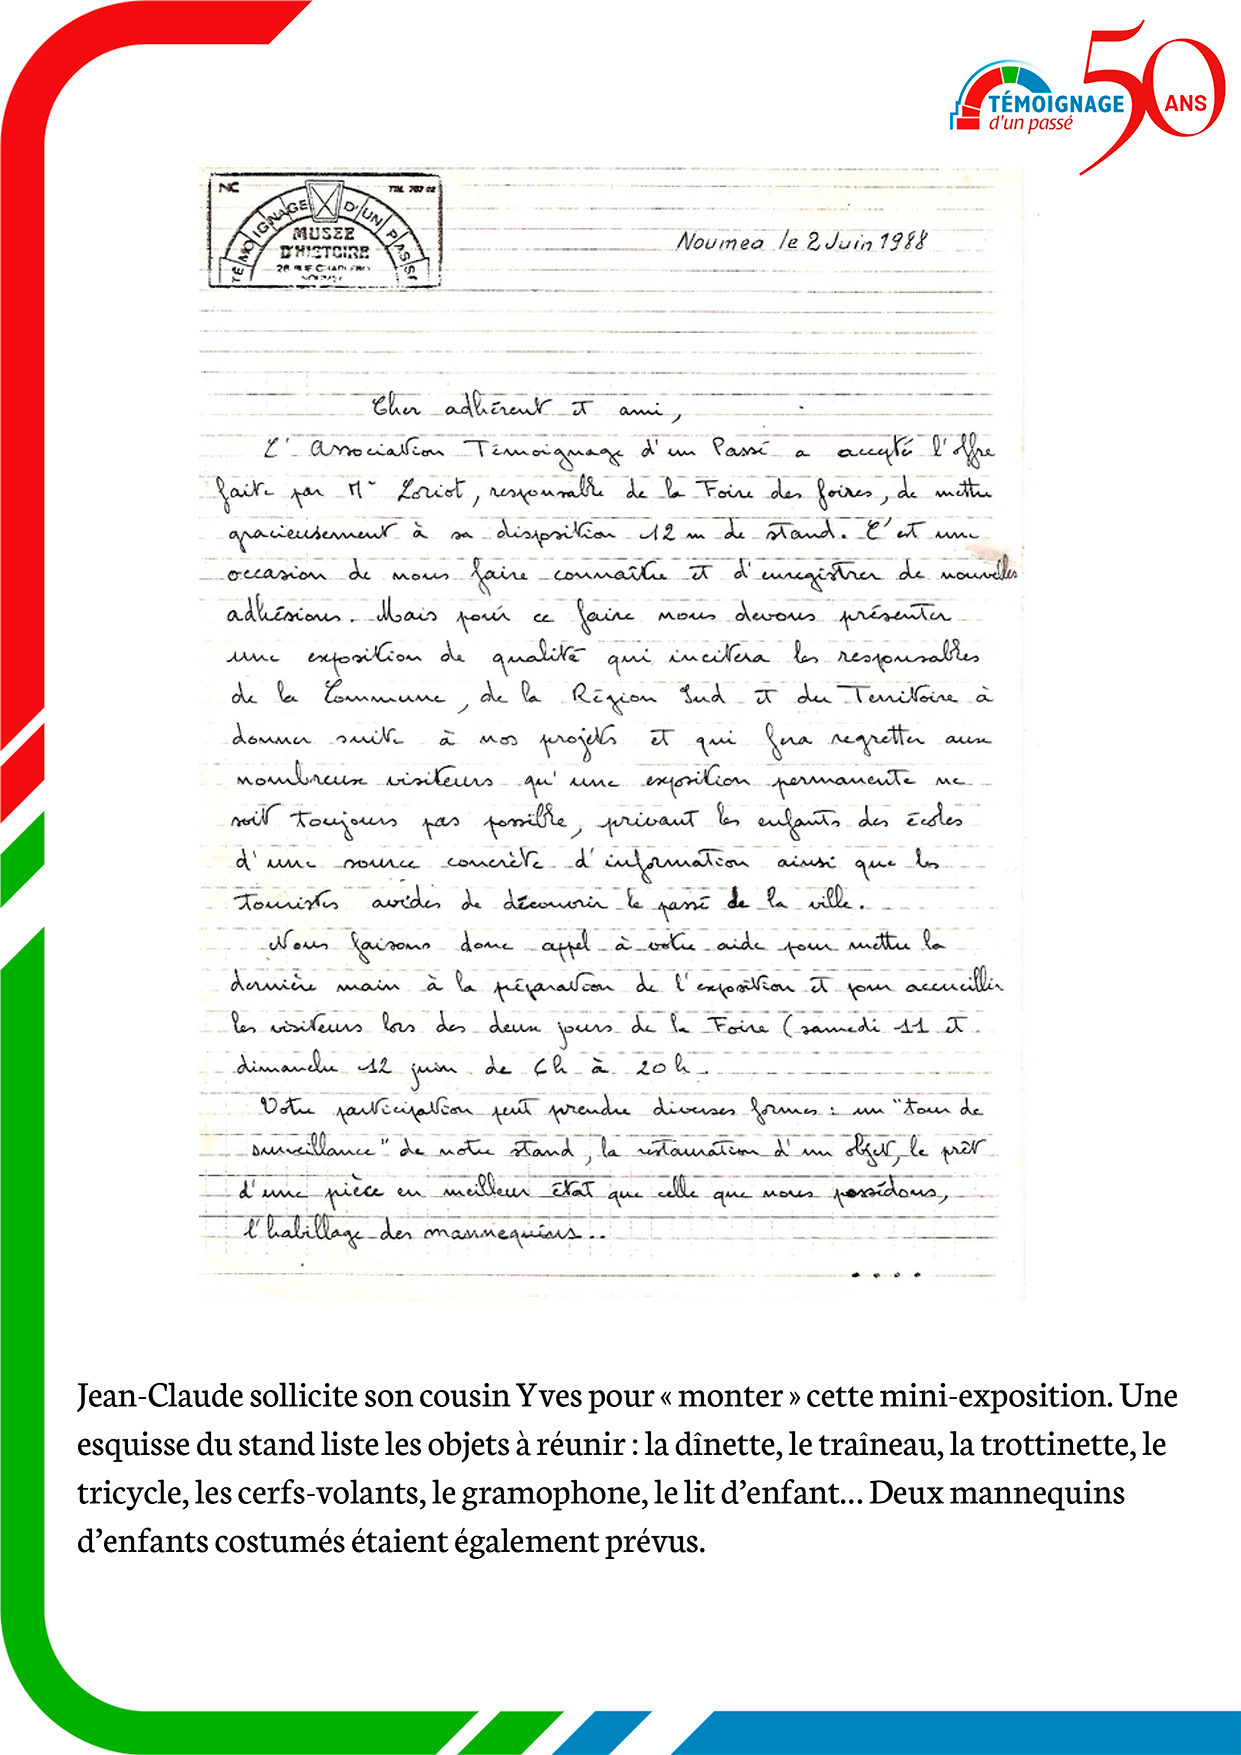 TÉMOIGNAGE
d'un passé
50 ANS
NC
TEL.
TÉMOIGNAGE D'UN PASSÉ
MUSEE
D'HISTOIRE
Noumea le 2 Juin 1988
Cher adhérent et ami,
L'Association Témoignage d'un Passé a accepté l'offre
faite par Mr Loriot, responsable de la Foire des foires, de mettre
gracieusement à sa disposition 12 m de stand. C'est une
occasion de nous faire connaître et d'enregistrer de nouvelles
adhésions. Mais pour ce faire nous devons présenter
une exposition de qualité qui incitera les responsables
de la Commune, de la Région Sud et du Territoire à
donner suite à nos projets et qui fera regretter aux
nombreux visiteurs qu'une exposition permanente ne
soit toujours pas possible, privant les enfants des écoles
d'une source concrète d'information ainsi que les
touristes avides de découvrir le passé de la ville.
Nous faisons donc appel à votre aide pour mettre la
dernière main à la préparation de l'exposition et pour accueillir
les visiteurs lors des deux jours de la Foire (samedi 11 et
dimanche 12 juin de 6h à 20h.
Votre participation peut prendre diverses formes : un "tour de
surveillance" de notre stand, la restauration d'un objet, le prêt
d'une pièce en meilleur état que celle que nous possédons,
l'habillage des mannequins..
....
Jean-Claude sollicite son cousin Yves pour « monter » cette mini-exposition. Une
esquisse du stand liste les objets à réunir : la dînette, le traîneau, la trottinette, le
tricycle, les cerfs-volants, le gramophone, le lit d'enfant… Deux mannequins
d'enfants costumés étaient également prévus.